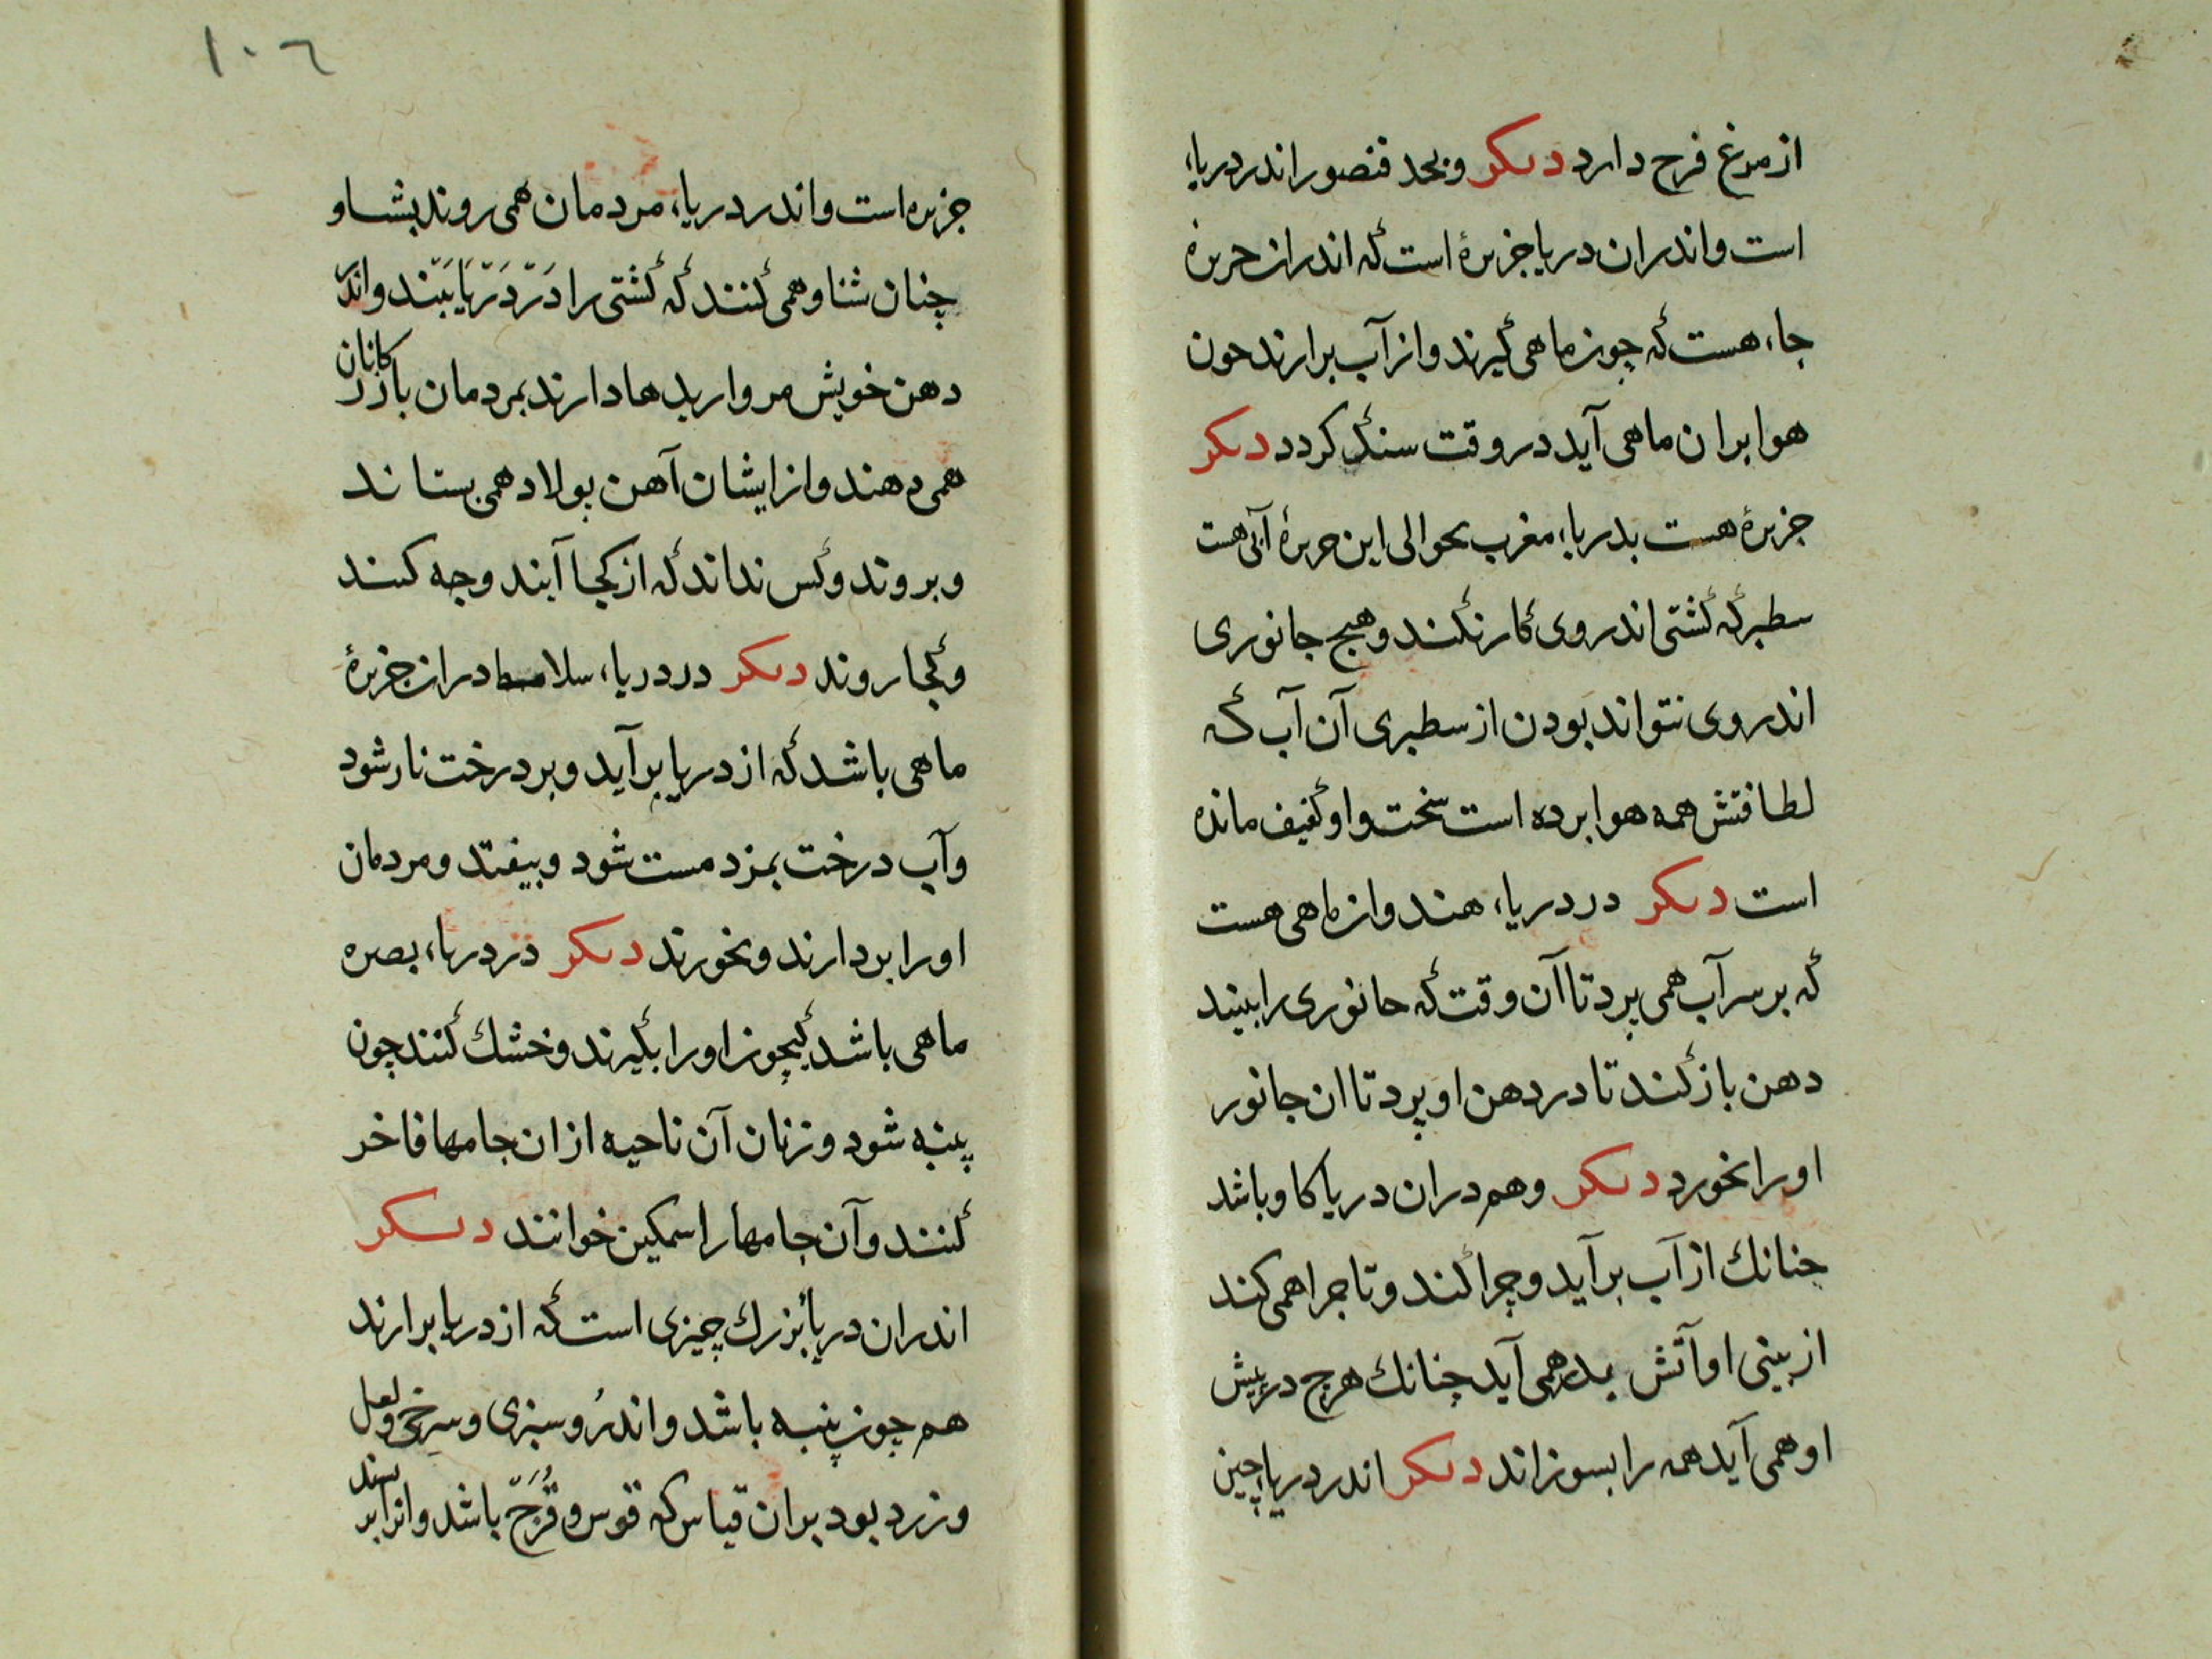 از مرغ فرح دارد دیکر وبحد فنصور اندر دریاء
است واندران دریا جزیرهٔ است که اندران جزیرهٔ
جاء هست که چون ماهی کیرند واز آب برارند چون
هوا بران ماهی آید در وقت سنک کردد دیکر
جزیرهٔ هست بدریاء مغرب بحوالی این جزیرهٔ آبی هست
سطبر که کشتی اندر وی کار نکند وهیچ جانوری
اندر وی نتواند بودن از سطبری آن آب که
لطافتش همه هوا برده است سخت واو کثیف مانده
است دیکر در دریاء هند وان ماهی هست
که بر سر آب همی پرد تا آن وقت که جانوری را بیند
دهن باز کند تا در دهن او پرد تا ان جانور
او را بخورد دیکر وهم دران دریا کاو باشد
چنانك از آب برآید وچرا کند وتا چرا همی کند
از بینی او آتش بدر همی آید چنانك هرچ در پیش
او همی آید همه را بسوزاند دیکر اندر دریاء چین
١٠٦
جزیره است واندر دریاء مردمان همی روند بشناو
چنان شناو همی کنند که کشتی را در دریا بینند واندر
دهن خویش مرواریدها دارند بمردمان بازرکانان
همی دهند واز ایشان آهن پولاد همی بستانند
وبروند وکس نداند که از کجا آیند وچه کنند
وکجا روند دیکر در دریاء سلامط دران جزیرهٔ
ماهی باشد که از دریا برآید وبر درخت نار شود
وآب درخت بمزد مست شود وبیفتد ومردمان
او را بردارند وبخورند دیکر در دریاء بصره
ماهی باشد کچون او را بکیرند وخشك کنند چون
پنبه شود وزنان آن ناحیه ازان جامها فاخر
کنند وآن جامها را سمکین خوانند دیکر
اندران دریا بزرك چیزی است که از دریا برارند
هم چون پنبه باشد واندرو سبزی وسرخی ولعل
وزرد بود بران قیاس که قوس وقزح باشد وانرا بریسند